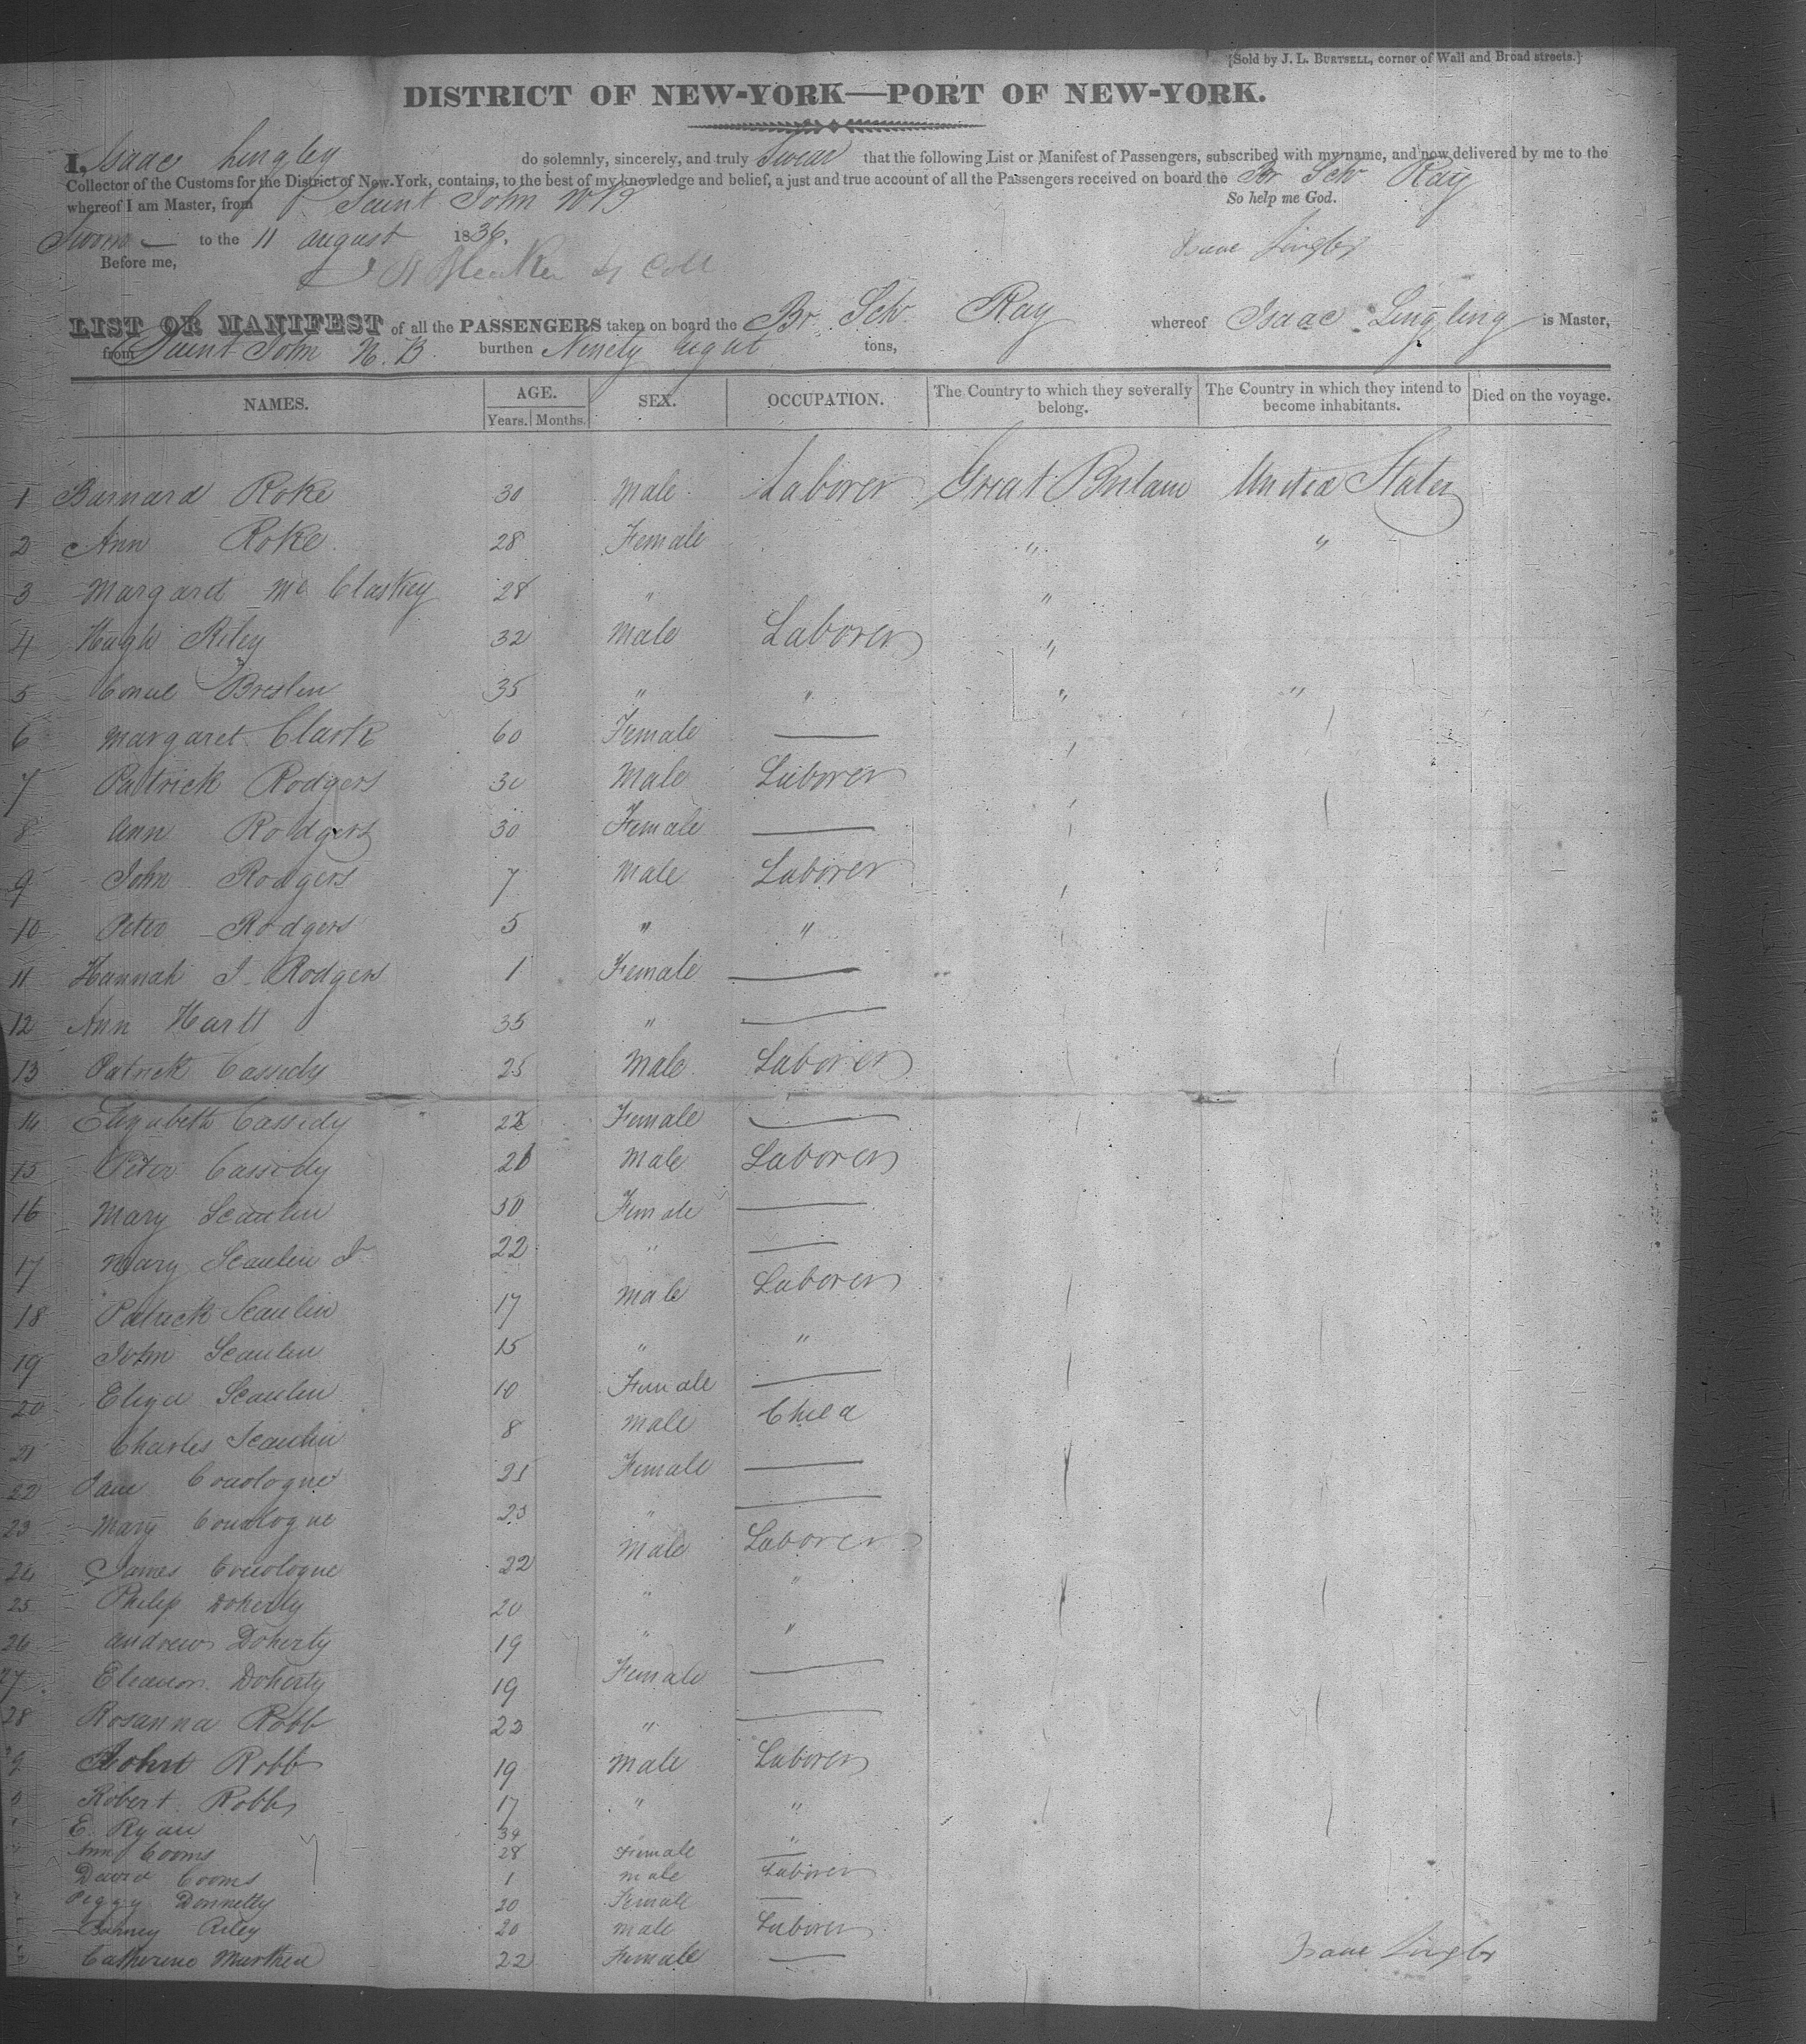 [Sold by J. L. BURTSELL, corner of Wall and Broad streets.]
DISTRICT OF NEW-YORK—PORT OF NEW-YORK.
I, Isaac Lingley do solemnly, sincerely, and truly Swear that the following List or Manifest of Passengers, subscribed with my name, and now delivered by me to the
Collector of the Customs for the District of New-York, contains, to the best of my knowledge and belief, a just and true account of all the Passengers received on board the Br Schr Ray
whereof I am Master, from Saint John N B So help me God.
Sworn to the 11 august 1836.
Before me, Coll Isaac Lingley
LIST OR MANIFEST of all the PASSENGERS taken on board the Br Schr Ray whereof Isaac Lingling is Master,
from Saint John N. B. burthen Ninety eight tons,
NAMES. AGE. SEX. OCCUPATION. The Country to which they severally belong. The Country in which they intend to become inhabitants. Died on the voyage.
Years. Months.
1 Barnard Roke 30 Male Laborer Great Britain United States
2 Ann Roke 28 Female " "
3 Margaret Mc Claskey 28 " "
4 Hugh Riley 32 Male Laborer "
5 Breslin 35 " " " "
6 Margaret Clark 60 Female —
7 Patrick Rodgers 30 Male Laborer
8 Ann Rodgers 30 Female —
9 John Rodgers 7 Male Laborer
10 Peter Rodgers 5 " "
11 Hannah J. Rodgers 1 Female —
12 Ann Hartt 35 " —
13 Patrick Cassidy 25 Male Laborer
14 Elizabeth Cassidy 22 Female —
15 Peter Cassidy 21 Male Laborer
16 Mary Scanlin 50 Female —
17 Mary Scanlin Jr 22 " —
18 Patrick Scanlin 17 Male Laborer
19 John Scanlin 15 " "
20 Eliza Scanlin 10 Female —
21 Charles Scanlin 8 Male Child
22 Jane Conologue 25 Female —
23 Mary Conologue 23 " —
24 James Conologue 22 Male Laborer
25 Philip Doherty 20 " "
26 Andrew Doherty 19 " "
27 Eleanor Doherty 19 Female —
28 Rosanna Robb 23 " —
9 John Robb 19 Male Laborer
Robert Robb 17 " "
E. Ryan 34 "
Ann Cooms 28 Female —
David Cooms 1 male Laborer
Peggy Donnelly 20 Female —
Barney Riley 20 male Laborer
Catherine 22 Female —
Isaac Lingley